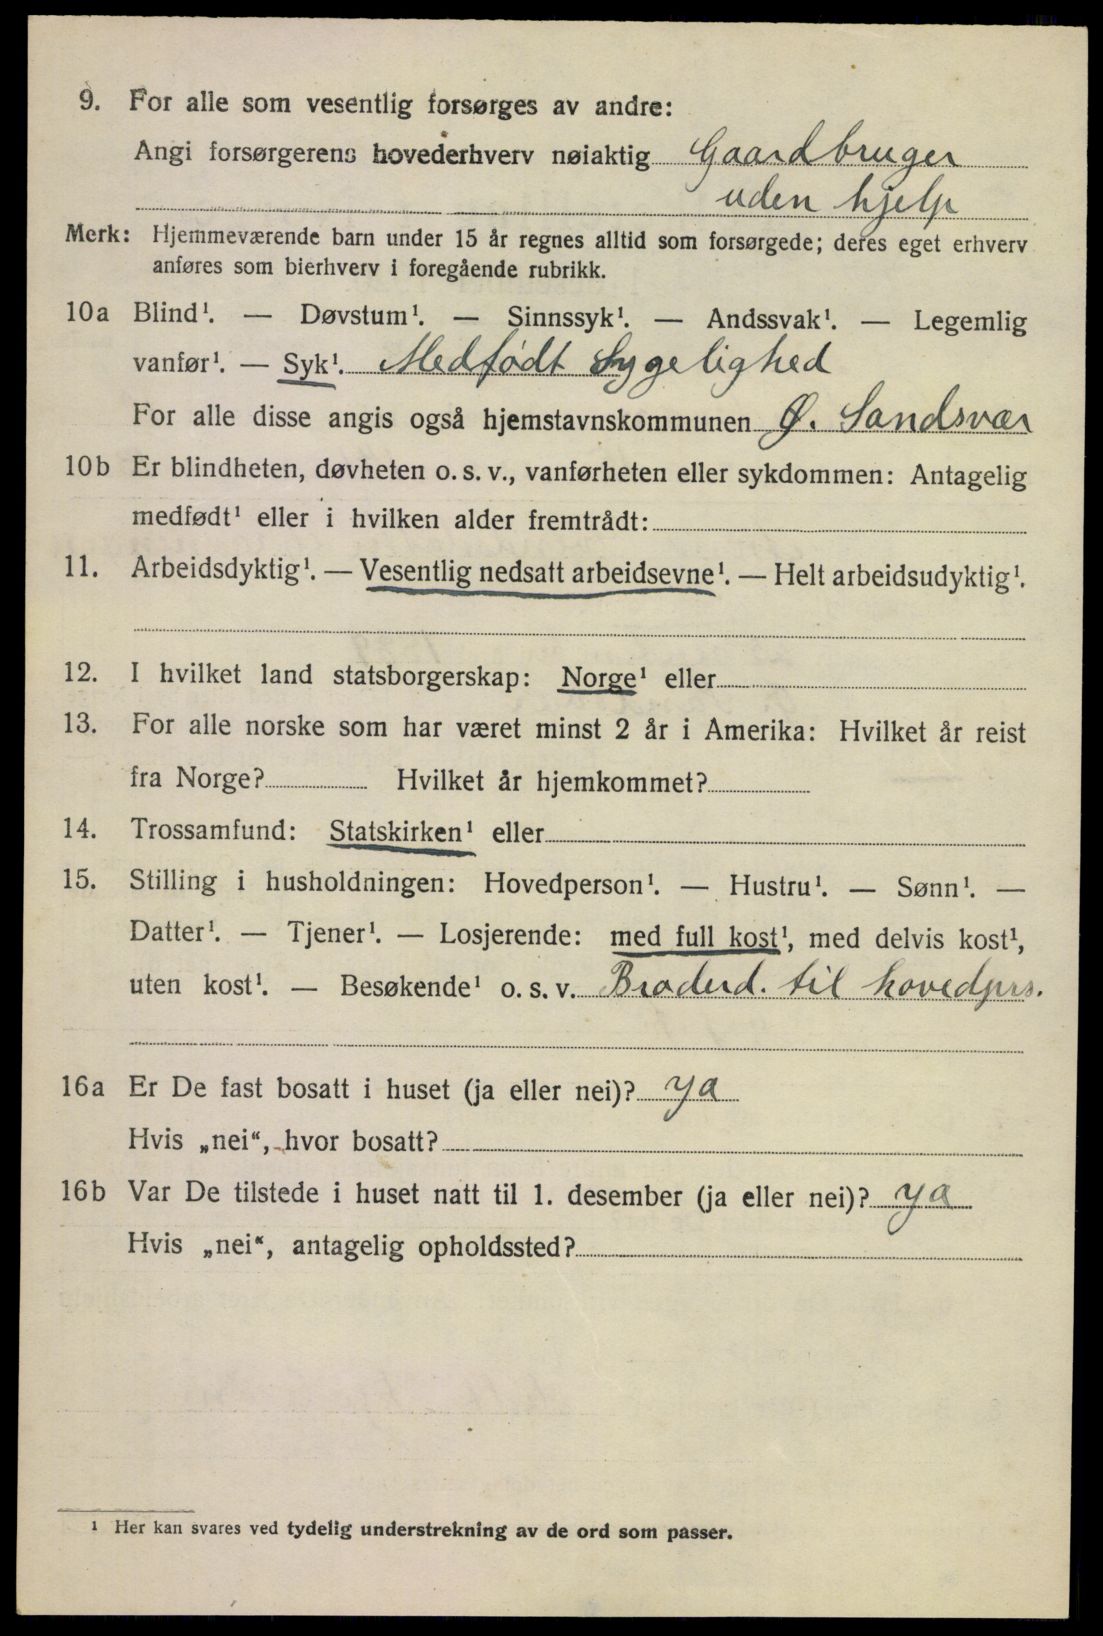 9. For alle som vesentlig forsørges av andre:
Angi forsørgerens hovederhverv nøiaktig Gaardbruger
uden hjelp
Merk: Hjemmeværende barn under 15 år regnes alltid som forsørgede; deres eget erhverv
anføres som bierhverv i foregående rubrikk.
10a Blind¹. — Døvstum¹. — Sinnssyk¹. — Andssvak¹. — Legemlig
vanfør¹. — Syk¹. Medfødt Sygelighed
For alle disse angis også hjemstavnskommunen Ø. Sandsvær
10b Er blindheten, døvheten o. s. v., vanførheten eller sykdommen: Antagelig
medfødt¹ eller i hvilken alder fremtrådt:
11. Arbeidsdyktig¹. — Vesentlig nedsatt arbeidsevne¹. — Helt arbeidsudyktig¹.
12. I hvilket land statsborgerskap: Norge¹ eller
13. For alle norske som har været minst 2 år i Amerika: Hvilket år reist
fra Norge? Hvilket år hjemkommet?
14. Trossamfund: Statskirken¹ eller
15. Stilling i husholdningen: Hovedperson¹. — Hustru¹. — Sønn¹. —
Datter¹. — Tjener¹. — Losjerende: med full kost¹, med delvis kost¹,
uten kost¹. — Besøkende¹ o. s. v. Broderd. til hovedprs.
16a Er De fast bosatt i huset (ja eller nei)? ya
Hvis „nei“, hvor bosatt?
16b Var De tilstede i huset natt til 1. desember (ja eller nei)? ya
Hvis „nei“, antagelig opholdssted?
¹ Her kan svares ved tydelig understrekning av de ord som passer.